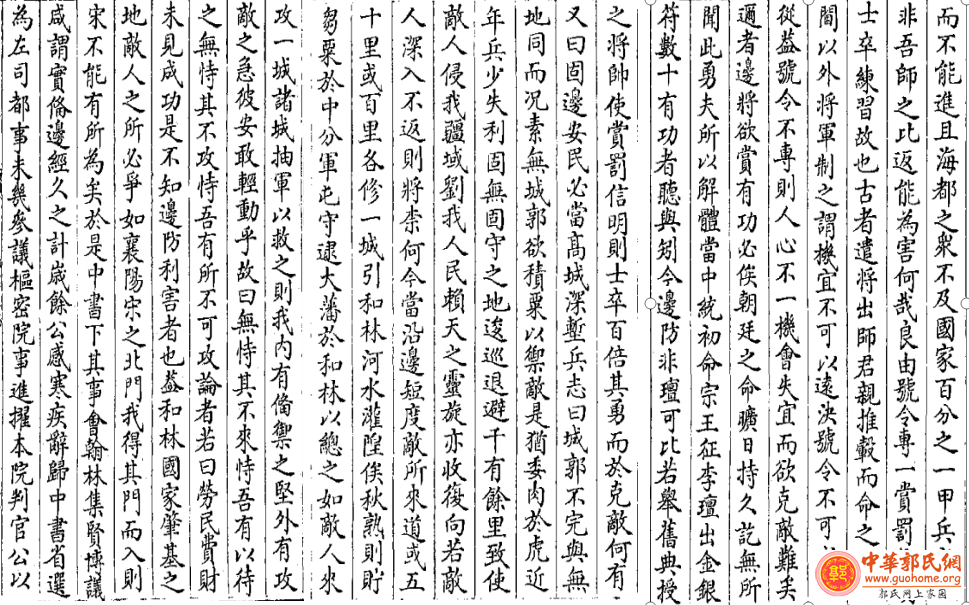 而不能進且海都之衆不及國家百分之一甲兵
非吾師之比返能為害何哉良由號令專一賞罰
士卒練習故也古者遣將出師君親推轂而命之
閫以外將軍制之謂機宜不可以遠決號令不可
從葢號令不專則人心不一機會失宜而欲克敵難矣
邇者邊將欲賞有功必俟朝廷之命曠日持久訖無所
聞此勇夫所以解體當中統初命宗王征李璮出金銀
符數十有功者聽與夘今邊防非璮可比若舉舊典授
之將帥使賞罰信明則士卒百倍其勇而於克敵何有
又曰固邊安民必當高城深塹兵志曰城郭不完與無
地同而况素無城郭欲積粟以禦敵是猶委肉於虎近
年兵少失利固無固守之地逡巡退避千有餘里致使
敵人侵我疆域劉我人民賴天之靈旋亦收復向若敵
人深入不返則將柰何今當沿邊短度敵所來道或五
十里或百里各修一城引和林河水灌隍俟秋熟則貯
芻粟於中分軍屯守建大藩於和林以總之如敵人來
攻一城諸城抽軍以救之則我内有備禦之堅外有攻
敵之急彼安敢輕動乎故曰無恃其不來恃吾有以待
之無恃其不攻恃吾有所不可攻論者若曰勞民費財
未見成功是不知邊防利害者也葢和林國家肇基之
地敵人之所必爭如襄陽宋之北門我得其門而入則
宋不能有所為矣於是中書下其事㑹翰林集賢博議
咸謂實備邊經久之計歲餘公感寒疾辭歸中書省選
為左司都事未幾參議樞密院事進擢本院判官公以
中華郭氏網
www.guohome.org
郭氏网上家园